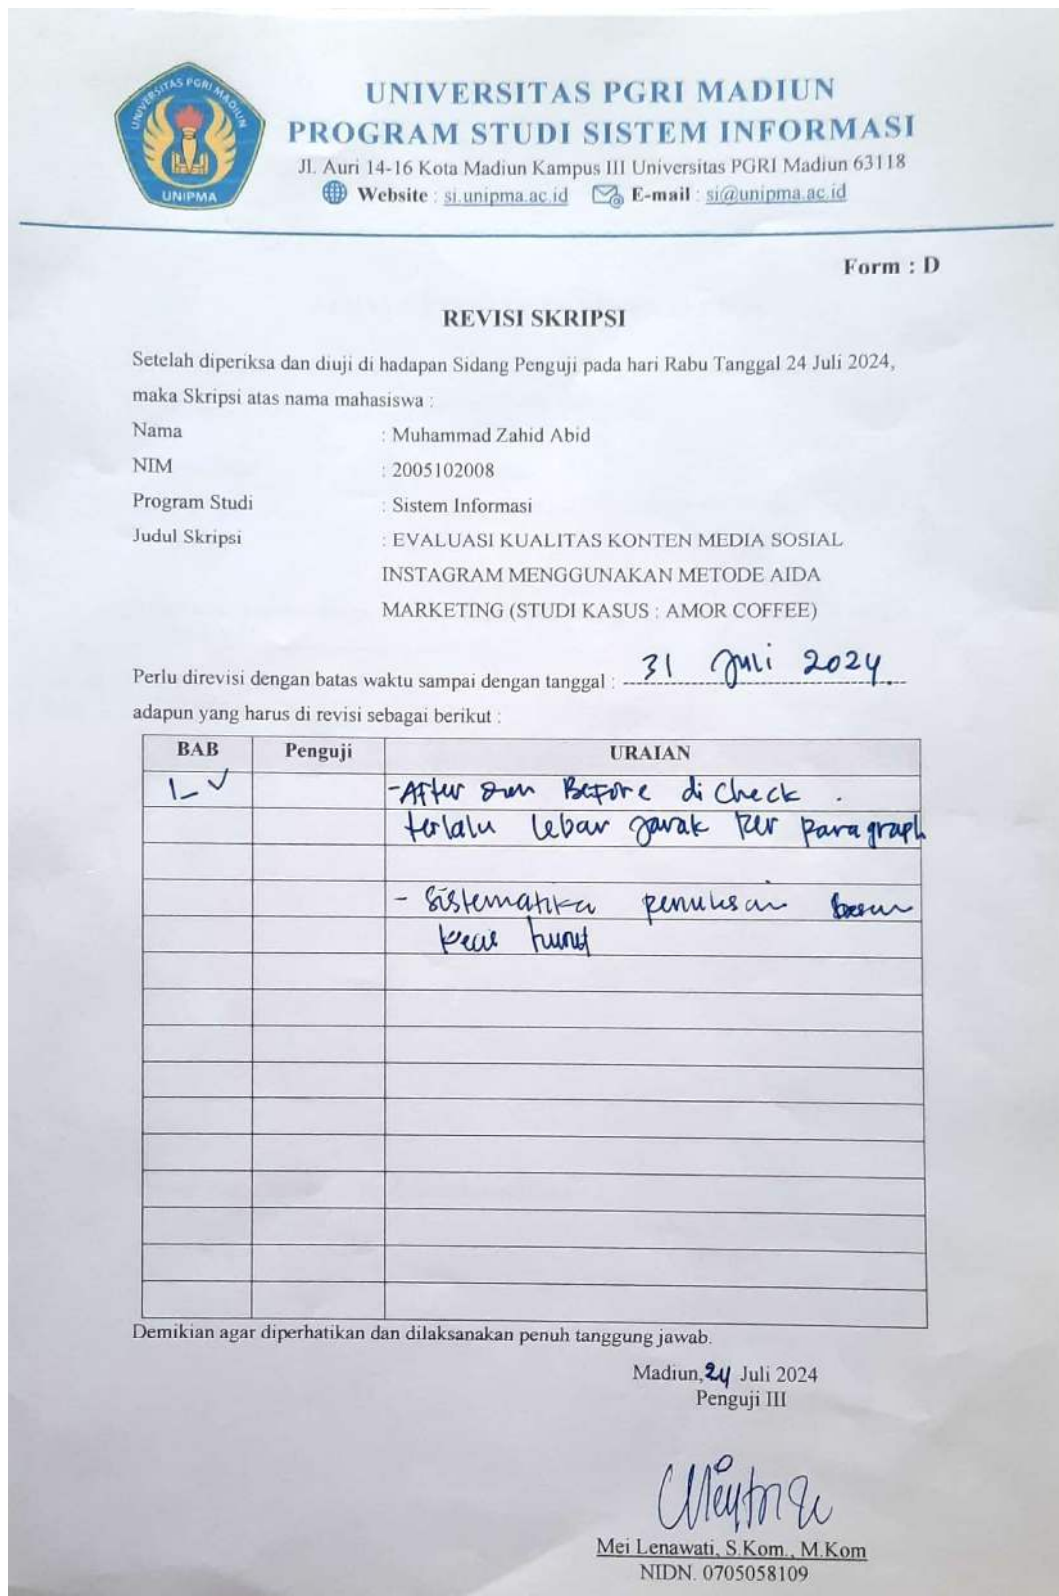 UNIVERSITAS PGRI MADIUN
UNIPMA
UNIVERSITAS PGRI MADIUN
PROGRAM STUDI SISTEM INFORMASI
Jl. Auri 14-16 Kota Madiun Kampus III Universitas PGRI Madiun 63118
Website : si.unipma.ac.id E-mail : si@unipma.ac.id
Form : D
REVISI SKRIPSI
Setelah diperiksa dan diuji di hadapan Sidang Penguji pada hari Rabu Tanggal 24 Juli 2024,
maka Skripsi atas nama mahasiswa :
Nama : Muhammad Zahid Abid
NIM : 2005102008
Program Studi : Sistem Informasi
Judul Skripsi : EVALUASI KUALITAS KONTEN MEDIA SOSIAL
INSTAGRAM MENGGUNAKAN METODE AIDA
MARKETING (STUDI KASUS : AMOR COFFEE)
Perlu direvisi dengan batas waktu sampai dengan tanggal : 31 Juli 2024.
adapun yang harus di revisi sebagai berikut :
BAB Penguji URAIAN
I-V -After dan Before di check .
terlalu lebar jarak per paragraph
- Sistematika penulisan besar
kecil huruf
Demikian agar diperhatikan dan dilaksanakan penuh tanggung jawab.
Madiun, 24 Juli 2024
Penguji III
Mei Lenawati, S.Kom., M.Kom
NIDN. 0705058109